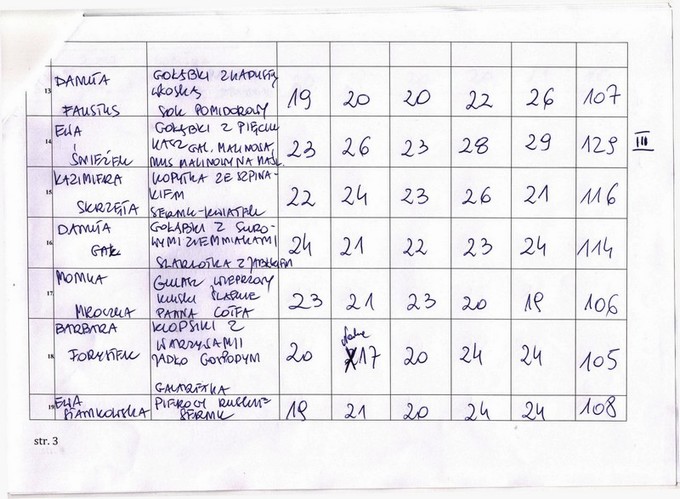 13 DANUTA FAUSTUS GOŁĄBKI Z KAPUSTĄ WŁOSKĄ SOK POMIDOROWY 19 20 20 22 26 107
14 EWA ŚNIEŻEK GOŁĄBKI Z PIĘCIU KASZ GAL. MALINOWA, MUS MALINOWY NA MAŚL. 23 26 23 28 29 129 III
15 KAZIMIERA SKRZĘTA KOPYTKA ZE SZPINA-KIEM SERNIK-KWIATEK 22 24 23 26 21 116
16 DANUTA GAK GOŁĄBKI Z SURO-WYMI ZIEMNIAKAMI SZARLOTKA Z JABŁKAMI 24 21 22 23 24 114
17. MONIKA MROCZKA GULASZ WIEPRZOWY KLUSKI ŚLĄSKIE PANNA COTTA 23 21 23 20 19 106
18 BARBARA KLOPSIKI Z WARZYWAMI JADŁO GOSPODYNI GALARETKA 20 17 20 24 24 105
19 EWA PIEROGI RUSKIE SERNIK 19 21 20 24 24 108
str. 3